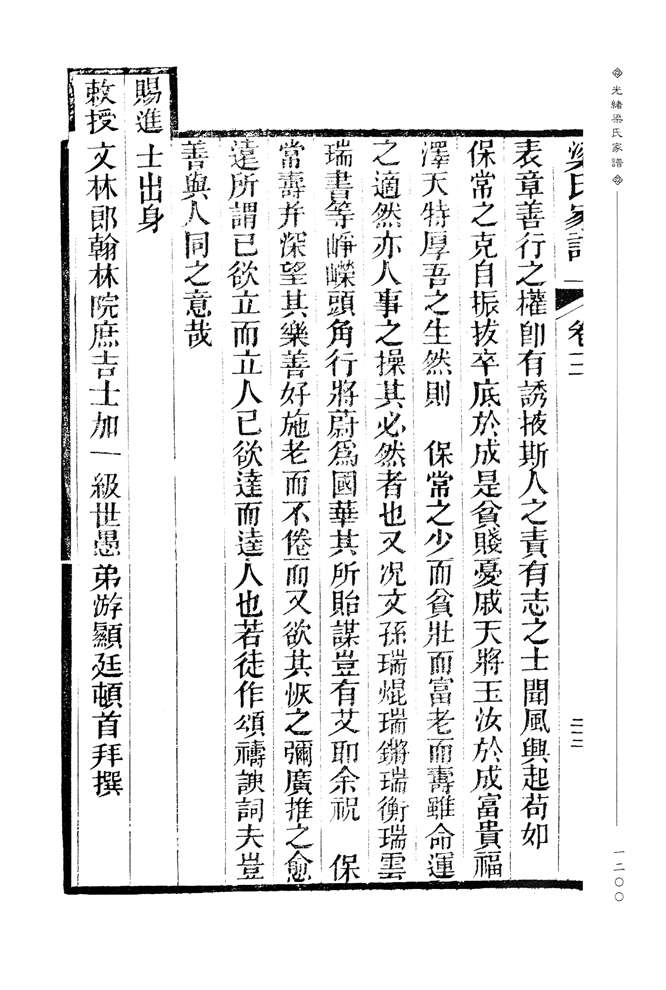 光緒梁氏家譜
一二〇〇
梁氏家譜 卷二 三三
表章善行之權卽有誘掖斯人之責有志之士聞風興起苟如
保常之克自振拔卒底於成是貧賤憂戚天將玉汝於成富貴福
澤天特厚吾之生然則 保常之少而貧壯而富老而壽雖命運
之適然亦人事之操其必然者也又况文孫瑞焜瑞鏘瑞衡瑞雲
瑞書等崢嶸頭角行將蔚爲國華其所貽謀豈有艾耶余祝 保
常壽幷深望其樂善好施老而不倦而又欲其恢之彌廣推之愈
遠所謂已欲立而立人已欲達而達人也若徒作頌禱諛詞夫豈
善與人同之意哉
賜進士出身
敕授文林郎翰林院庶吉士加一級世愚弟游顯廷頓首拜撰